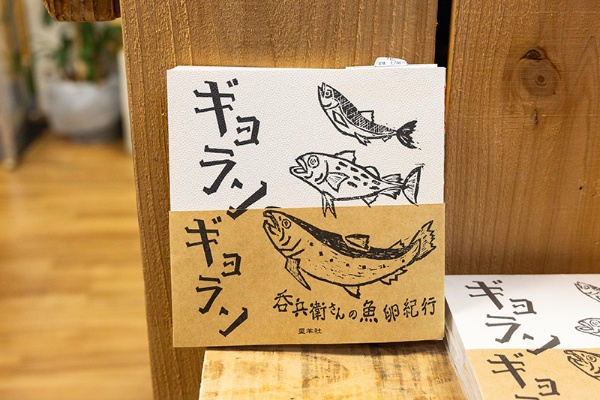 ギョラン
ギョラン
呑兵衛さんの魚卵紀行
星羊社
ギョラン
ギ